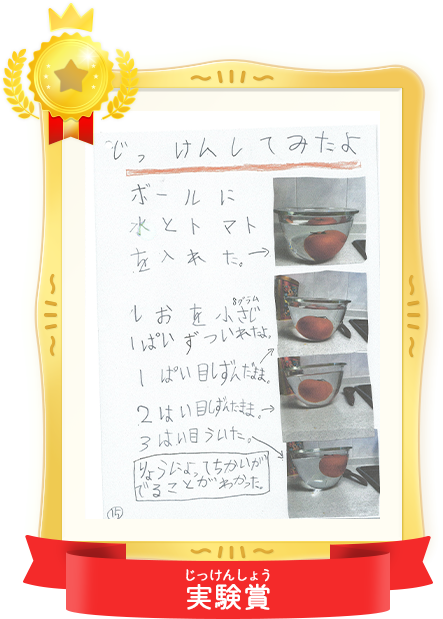 じっけんしてみたよ
ボールに
水とトマト
を入れた。→
8グラム
しおを小さじ
1ぱいずついれたよ。
1ぱい目しずんだまま。
2はい目しずんだまま。→
3はい目ういた。
りょうによってちがいが
でることがわかった。
15
じっけんしょう
実験賞